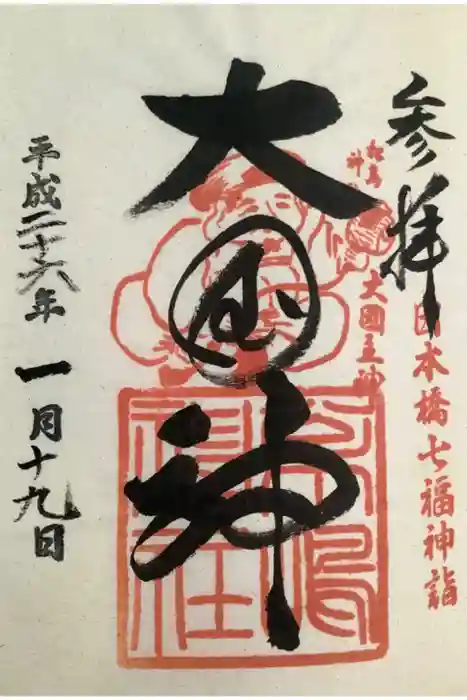 参拝
日本橋七福神詣
松島
神
大國主神
大国神
松島
神社
平成二十六年一月十九日